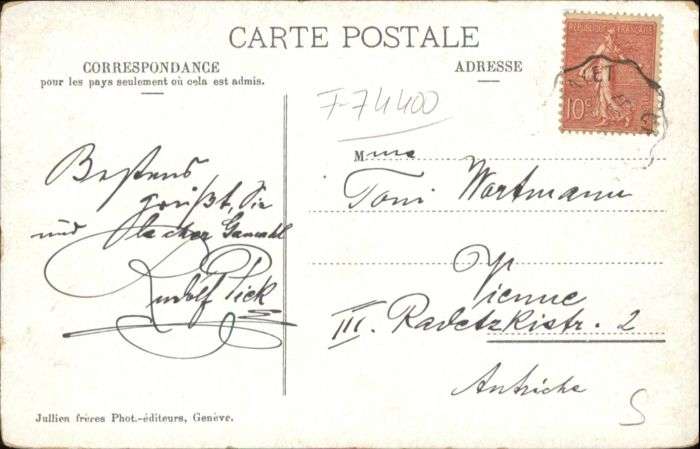 CARTE POSTALE
CORRESPONDANCE
pour les pays seulement où cela est admis.
ADRESSE
REPUBLIQUE FRANÇAISE
10c
F-74400
Bestens
grüßt Sie
und
Gemahl
Rudolf Pick
Mme
Toni Wortmann
Vienne
III. Radetzkistr. 2
Autriche
Jullien frères Phot.-éditeurs, Genève.
S